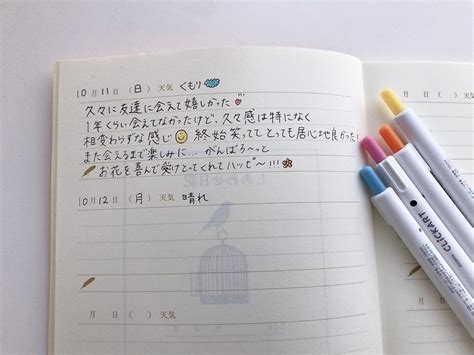 10月11日(日)天気 くもり
久々に友達に会えて嬉しかった
1年くらい会えてなかったけど、久々感は特になく
相変わらずな感じ 終始笑ってて とっても居心地良かった!
また会えるまで楽しみに…がんばろ〜っと
お花を喜んで受けとってくれてハッピ〜!!!
しあわせ日記
10月12日(月)天気 晴れ
月 日( )天気
月 日( )
CLiCKART
CLiCKART